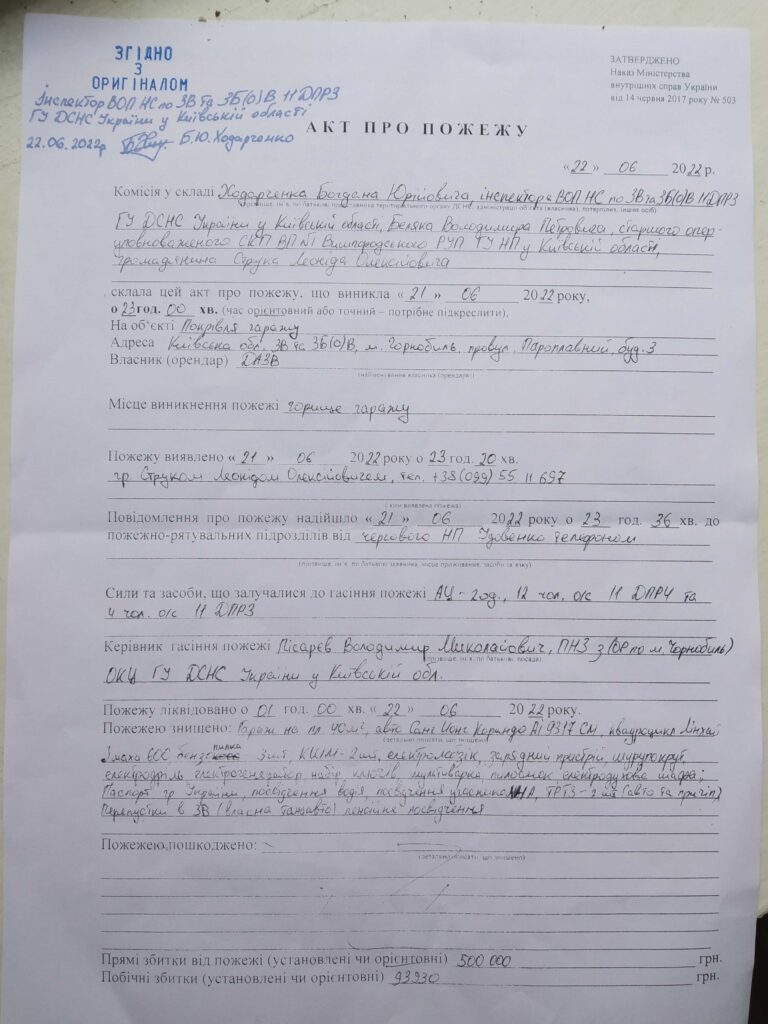 ЗГІДНО
З
ОРИГІНАЛОМ
Інспектор ВОП НС по ЗВ та ЗБ(О)В 11 ДПРЗ
ГУ ДСНС України у Київській області
22.06.2022р Б.Ю. Ходарченко
ЗАТВЕРДЖЕНО
Наказ Міністерства
внутрішніх справ України
від 14 червня 2017 року № 503
АКТ ПРО ПОЖЕЖУ
«22 » 06 2022 р.
Комісія у складі Ходарченка Богдана Юрійовича, інспектора ВОП НС по ЗВ та ЗБ(О)В 11 ДПРЗ
ГУ ДСНС України у Київській області, Беляка Володимира Петровича, старшого опер-
уповноваженого СКП ВП №1 Вишгородського РУП ГУ НП у Київській області,
громадянина Струка Леоніда Олексійовича
склала цей акт про пожежу, що виникла « 21 » 06 2022 року,
о 23 год. 00 хв. (час орієнтовний або точний – потрібне підкреслити).
На об‘єкті Покрівля гаражу
Адреса Київська обл. ЗВ та ЗБ(О)В, м. Чорнобиль, провул. Пароплавний, буд. 3
Власник (орендар) ДАЗВ
(найменування власника (орендаря))
Місце виникнення пожежі горище гаражу
Пожежу виявлено « 21 » 06 2022 року о 23 год. 20 хв.
гр. Струком Леонідом Олексійовичем, тел. +38(099) 55 11 697
(ким виявлена пожежа)
Повідомлення про пожежу надійшло « 21 » 06 2022 року о 23 год. 36 хв. до
пожежно-рятувальних підрозділів від чергового НП Удовенко телефоном
(прізвище, ім'я, по батькові заявника, місце проживання, засоби зв'язку)
Сили та засоби, що залучалися до гасіння пожежі АЦ - 2 од., 12 чол. о/с 11 ДПРЧ та
4 чол. о/с 11 ДПРЗ
Керівник гасіння пожежі Пісарєв Володимир Миколайович, ПНЗ з (ОР по м. Чорнобиль)
(прізвище, ім'я, по батькові, посада)
ОКЦ ГУ ДСНС України у Київській обл.
Пожежу ліквідовано о 01 год. 00 хв. « 22 » 06 2022 року.
Пожежею знищено: Гараж на пл 40м², авто Санг Йонг Корандо АІ 9317 СМ, квадроцикл Лінхай
(детально описати, що знищено)
Ямаха 600, бензопилка 3 шт, КШМ - 2 шт, електролобзік, зарядний пристрій, шуруповерт,
електродриль, електрогенератор, набір ключів, мультиварка, пилосмок, електродухова шафа;
Паспорт гр України, посвідчення водія, посвідчення учасника ЛНА, ТРТЗ - 2 шт (авто та причіп)
Перепустки в ЗВ (власна та на авто) пенсійне посвідчення
Пожежею пошкоджено:
(детально описати, що знищено)
Прямі збитки від пожежі (установлені чи орієнтовні) 500 000 грн.
Побічні збитки (установлені чи орієнтовні) 93930 грн.